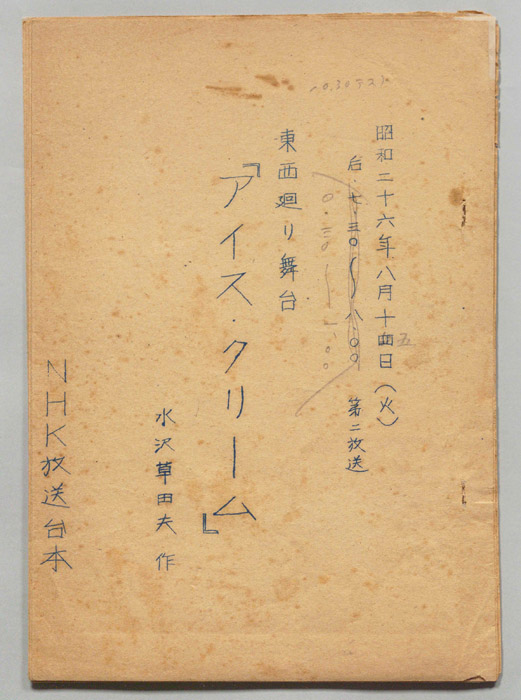 昭和二十六年八月十四日(火)
五
后.七.三〇〜八.〇〇 第二放送
〇.三〇〜一.〇〇
東西廻り舞台
『アイス・クリーム』
水沢草田夫 作
NHK放送台本